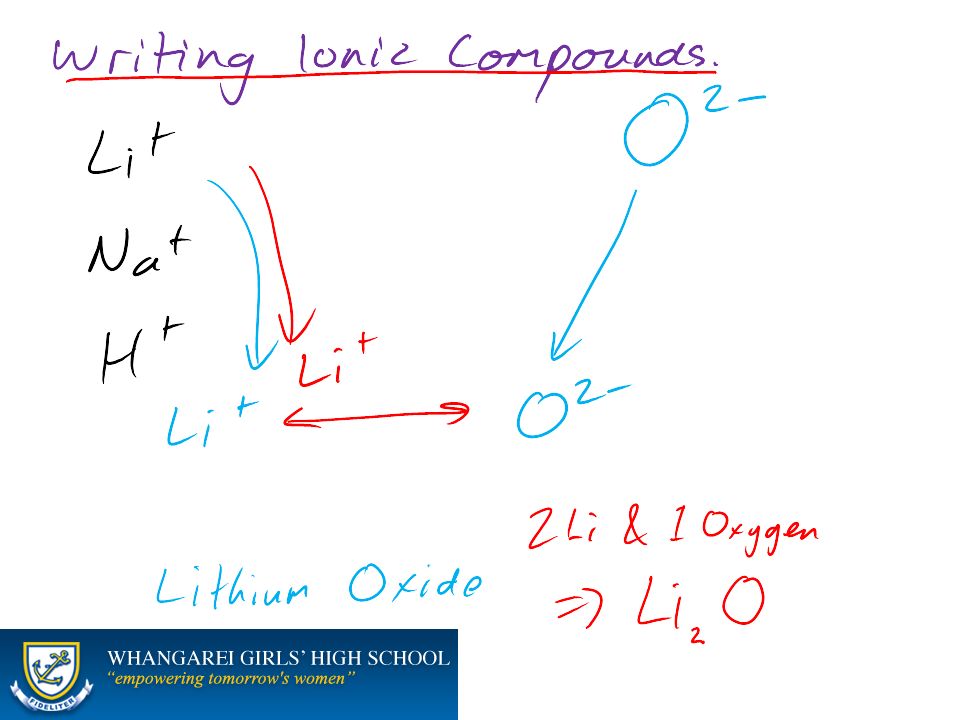 Writing Ionic Compounds.
Li⁺
O²⁻
Na⁺
H⁺
Li⁺
Li⁺
O²⁻
2 Li & 1 Oxygen
Lithium Oxide
⇒ Li₂O
WHANGAREI GIRLS' HIGH SCHOOL
"empowering tomorrow's women"
FIDELITER